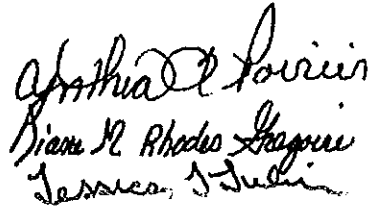 Cynthia A Poirier
Diane M. Rhodes Gregoire
Jessica